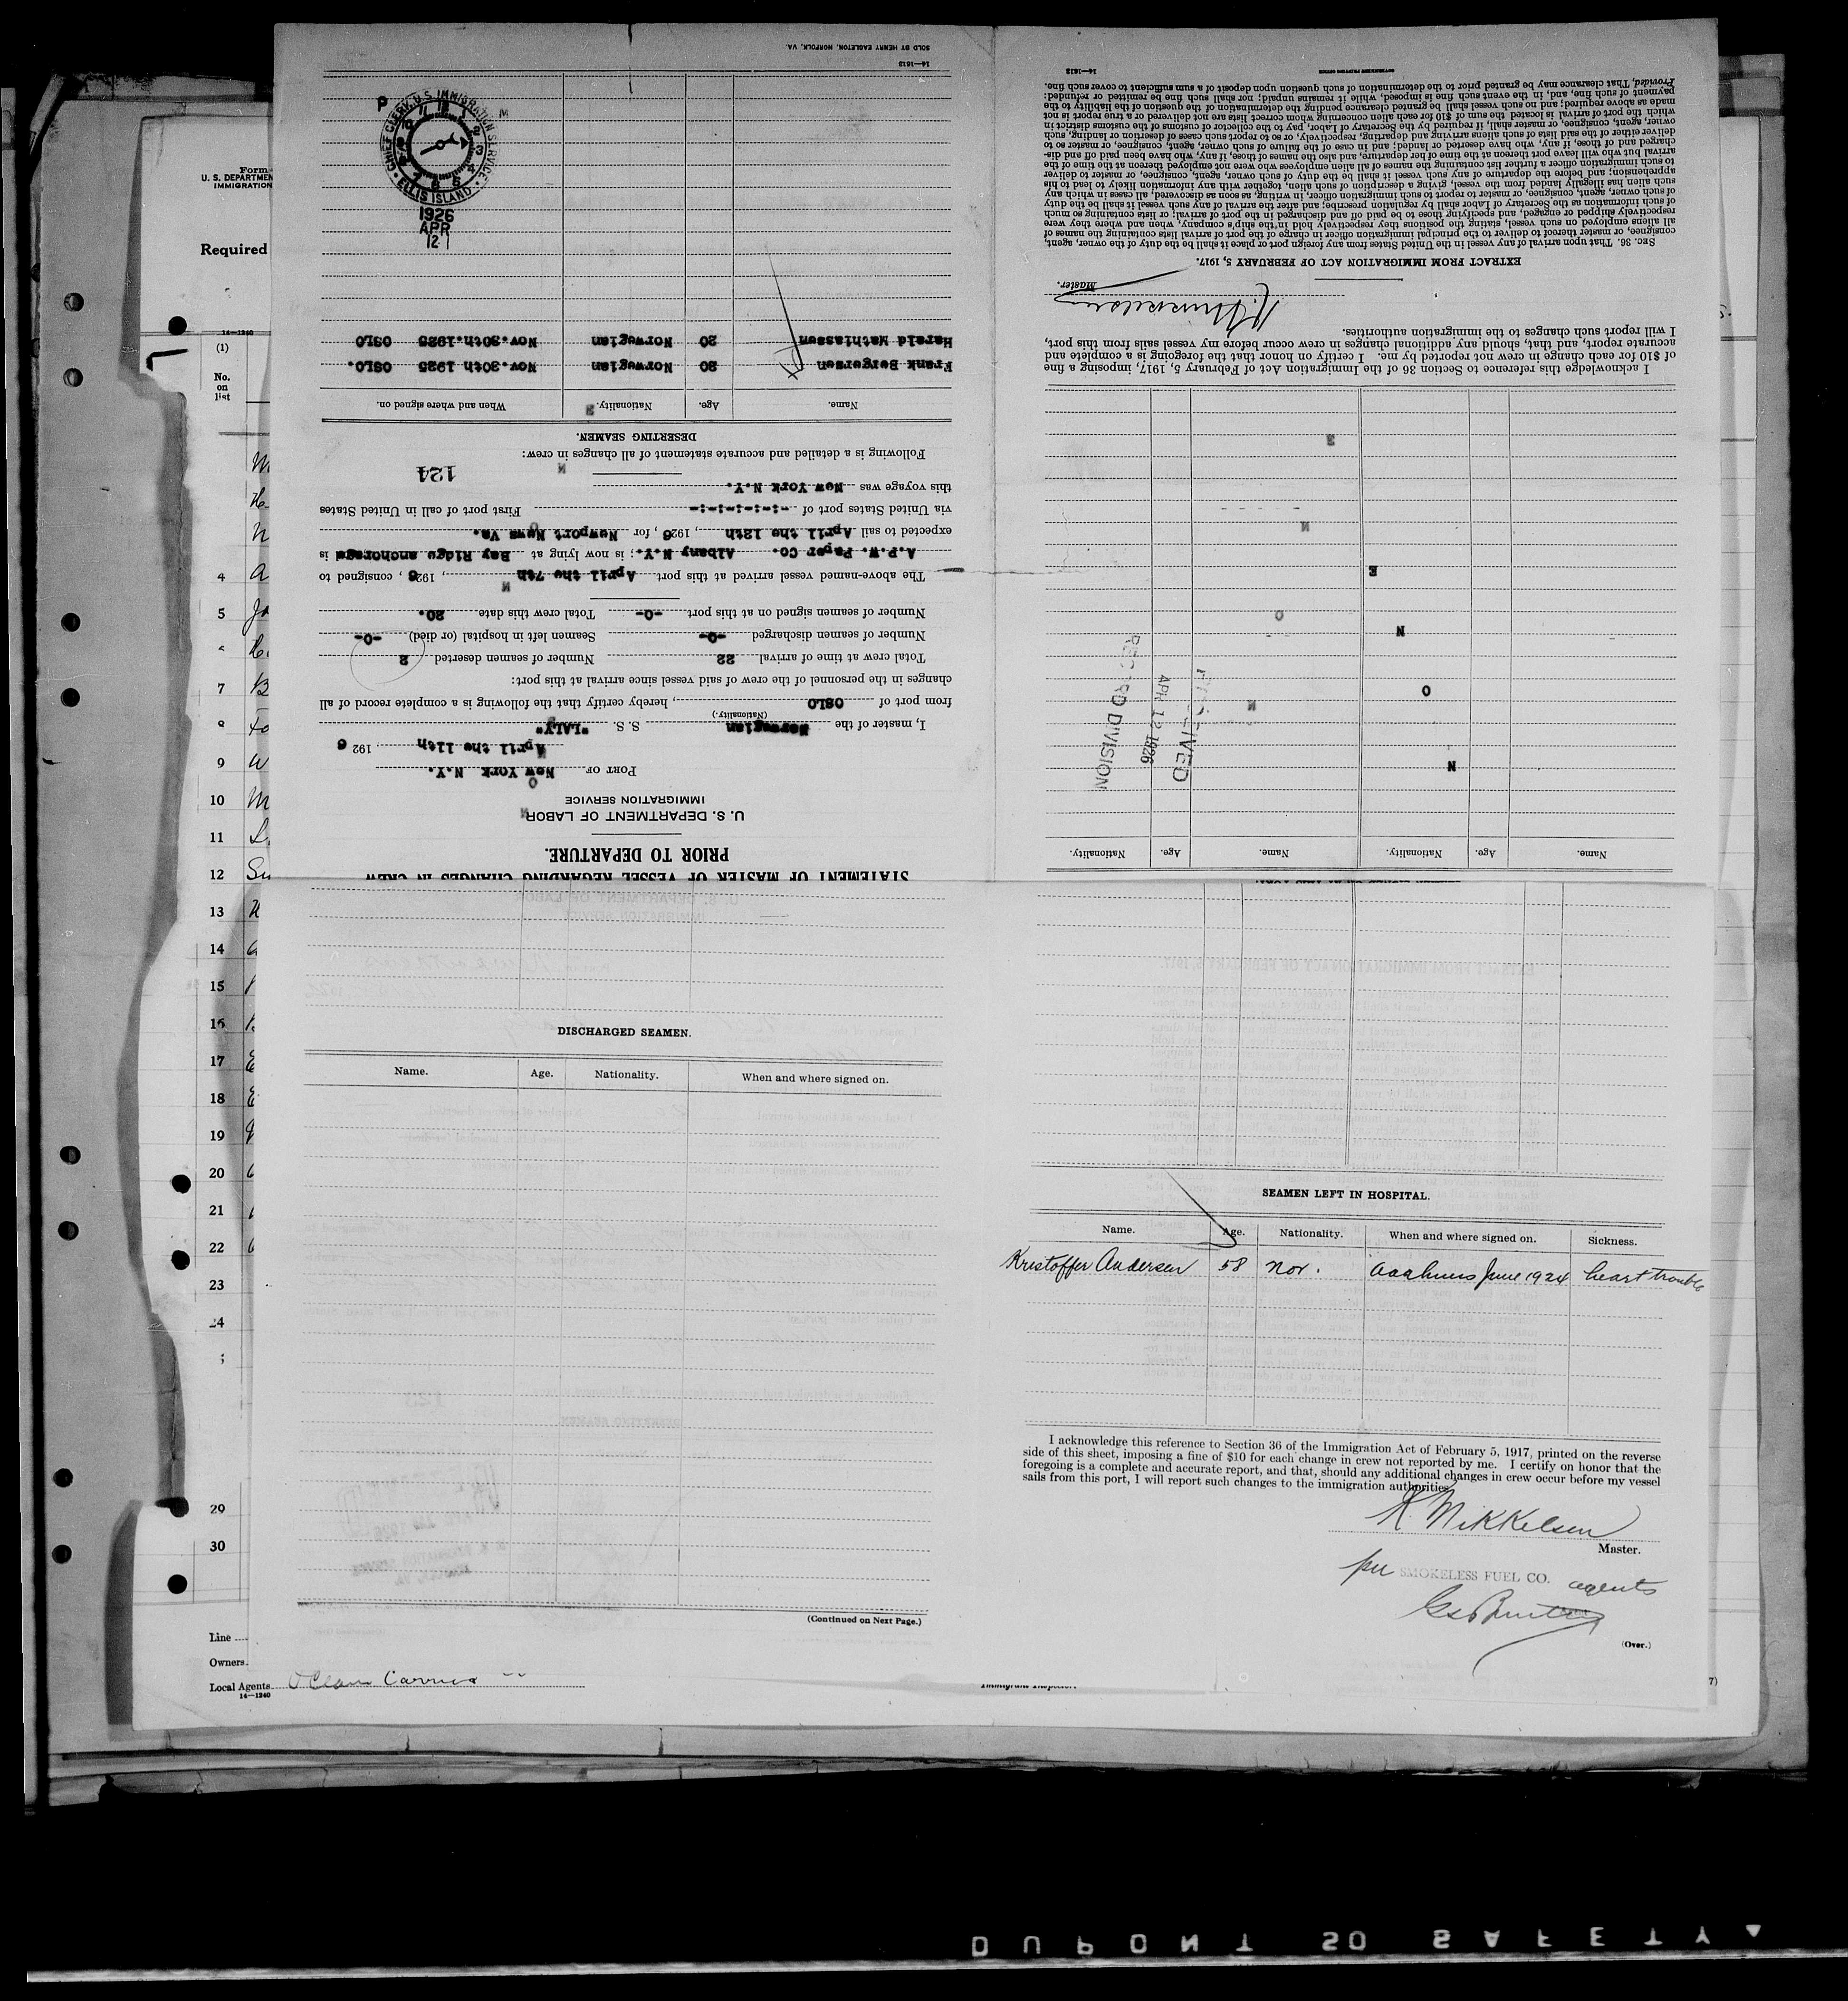 STATEMENT OF MASTER OF VESSEL REGARDING CHANGES IN CREW
PRIOR TO DEPARTURE.
U. S. DEPARTMENT OF LABOR
IMMIGRATION SERVICE
PORT OF New York N.Y.
April the 11th, 1926
I, master of the Norwegian S. S. "LALY"
(Nationality.)
from port of OSLO, hereby certify that the following is a complete record of all
changes in the personnel of the crew of said vessel since arrival at this port:
Total crew at time of arrival 22 Number of seamen deserted 2
Number of seamen discharged -0- Seamen left in hospital (or died) -0-
Number of seamen signed on at this port -0- Total crew this date 20.
The above-named vessel arrived at this port April the 7th, 1926, consigned to
A.P.W. Paper CO. Albany N.Y.; is now lying at Bay Ridge anchorage is
expected to sail April the 12th, 1926, for Newport News Va.
via United States port of -:-:-:-:-:- First port of call in United States
this voyage was New York N.Y.
124
Following is a detailed and accurate statement of all changes in crew:
DESERTING SEAMEN.
Name. Age. Nationality. When and where signed on.
Frank Bergersen 20 Norwegian Nov.30th.1925 OSLO.
Harald Mathiassen 20 Norwegian Nov.30th.1925 OSLO
CHIEF CLERK, U.S. IMMIGRATION SERVICE
ELLIS ISLAND
1926
APR
12
14—1613
SOLD BY HENRY EAGLETON, NORFOLK, VA.
Name. Age. Nationality. Name. Age. Nationality.
N
O
N
E
N
O
N
E
RECEIVED
APR 12 1926
RECORD DIVISION
I acknowledge this reference to Section 36 of the Immigration Act of February 5, 1917, imposing a fine
of $10 for each change in crew not reported by me. I certify on honor that the foregoing is a complete and
accurate report, and that, should any additional changes in crew occur before my vessel sails from this port,
I will report such changes to the immigration authorities.
K Mikkelsen
Master.
EXTRACT FROM IMMIGRATION ACT OF FEBRUARY 5, 1917.
SEC. 36. That upon arrival of any vessel in the United States from any foreign port or place it shall be the duty of the owner, agent,
consignee, or master thereof to deliver to the principal immigration officer in charge of the port of arrival lists containing the names of
all aliens employed on such vessel, stating the positions they respectively hold in the ship's company, when and where they were
respectively shipped or engaged, and specifying those to be paid off and discharged in the port of arrival; or lists containing so much
of such information as the Secretary of Labor shall by regulation prescribe; and after the arrival of any such vessel it shall be the duty
of such owner, agent, consignee, or master to report to such immigration officer, in writing, as soon as discovered, all cases in which any
such alien has illegally landed from the vessel, giving a description of such alien, together with any information likely to lead to his
apprehension; and before the departure of any such vessel it shall be the duty of such owner, agent, consignee, or master to deliver
to such immigration officer a further list containing the names of all alien employees who were not employed thereon at the time of the
arrival but who will leave port thereon at the time of her departure, and also the names of those, if any, who have been paid off and dis-
charged and of those, if any, who have deserted or landed; and in case of the failure of such owner, agent, consignee, or master so to
deliver either of the said lists of such aliens arriving and departing, respectively, or so to report such cases of desertion or landing, such
owner, agent, consignee, or master shall, if required by the Secretary of Labor, pay to the collector of customs of the customs district in
which the port of arrival is located the sum of $10 for each alien concerning whom correct lists are not delivered or a true report is not
made as above required; and no such vessel shall be granted clearance pending the determination of the question of the liability to the
payment of such fine, and, in the event such fine is imposed, while it remains unpaid; nor shall such fine be remitted or refunded:
Provided, That clearance may be granted prior to the determination of such question upon deposit of a sum sufficient to cover such fine.
14—1613
GOVERNMENT PRINTING OFFICE
Form
U. S. DEPARTMEN
IMMIGRATION
Required
14—1240
(1)
No.
on
list
4
5
7
9
10
11
12
13
14
15
16
17
18
19
20
21
22
23
24
29
30
DISCHARGED SEAMEN.
Name. Age. Nationality. When and where signed on.
(Continued on Next Page.)
SEAMEN LEFT IN HOSPITAL.
Name. Age. Nationality. When and where signed on. Sickness.
Kristoffer Andersen 58 nor. Aarhuus June 1924 heart trouble
I acknowledge this reference to Section 36 of the Immigration Act of February 5, 1917, printed on the reverse
side of this sheet, imposing a fine of $10 for each change in crew not reported by me. I certify on honor that the
foregoing is a complete and accurate report, and that, should any additional changes in crew occur before my vessel
sails from this port, I will report such changes to the immigration authorities.
K Mikkelsen
Master.
per SMOKELESS FUEL CO. agents
(Over.)
Line
Owners
Local Agents Ocean Carrier
14—1240
Immigrant Inspector.
7)
DUPONT 50 SAFETY